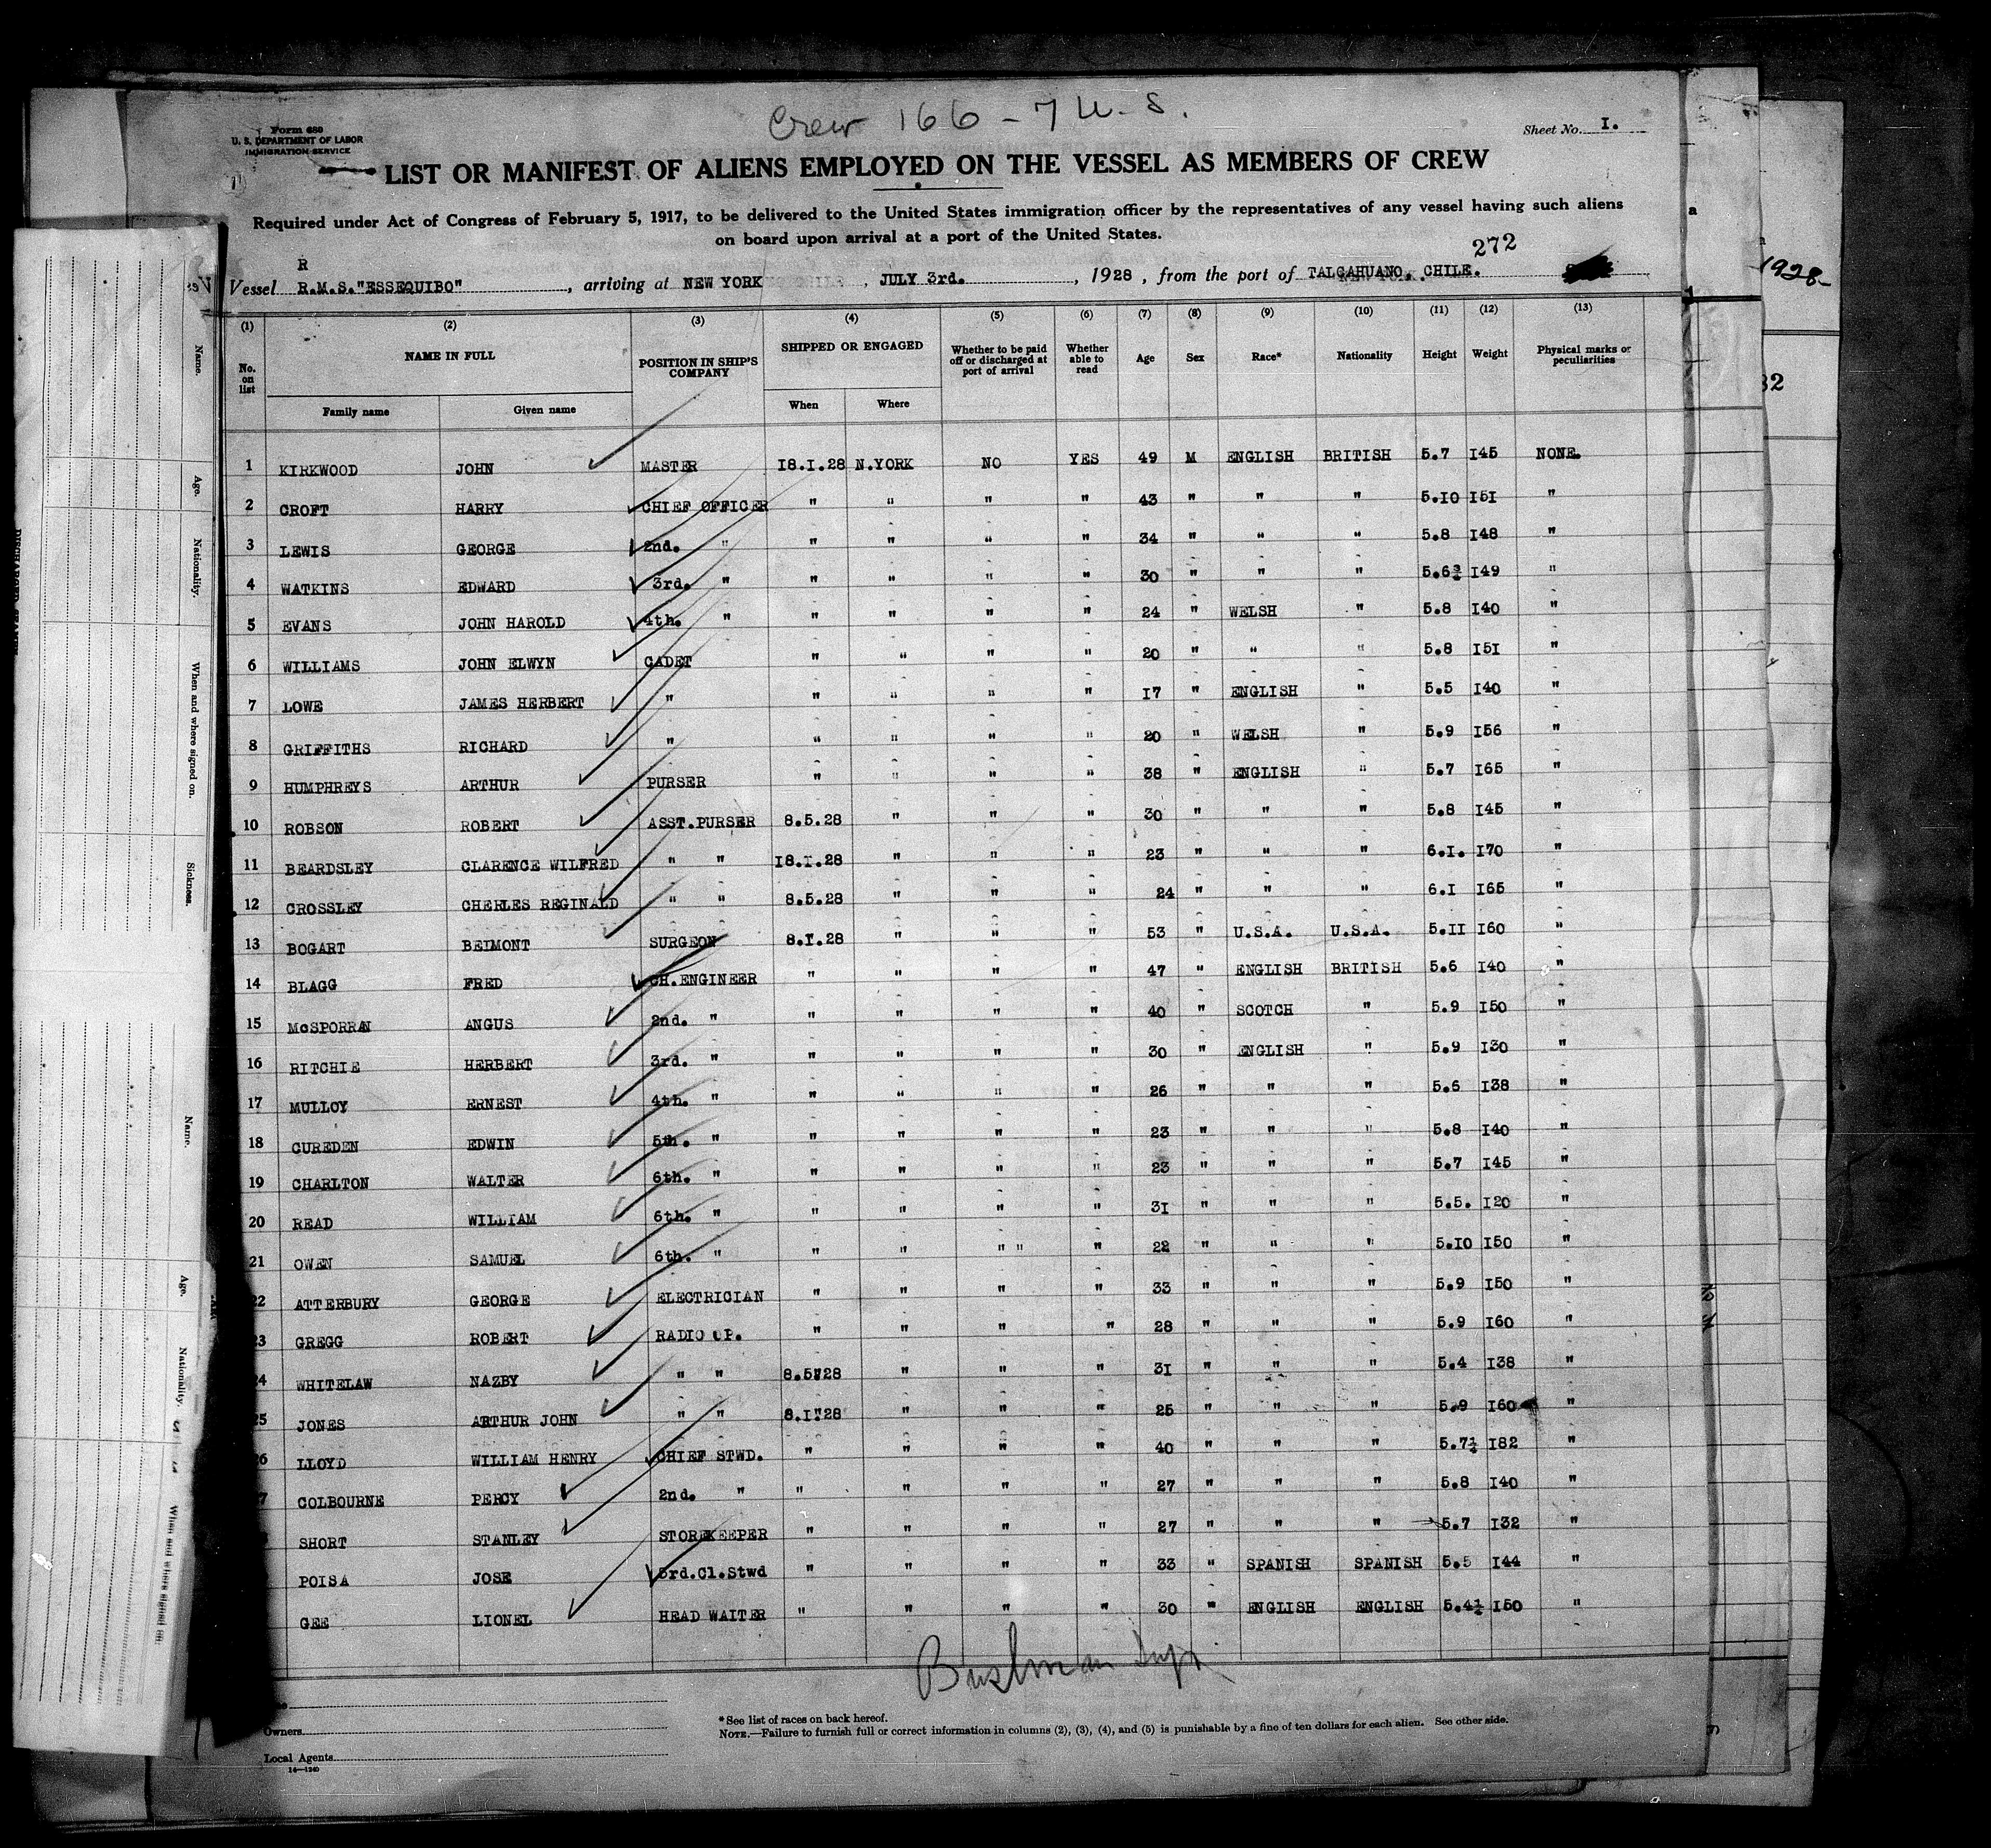 Crew 166 - 7 U.S.
Form 680
U. S. DEPARTMENT OF LABOR
IMMIGRATION SERVICE
Sheet No. I.
LIST OR MANIFEST OF ALIENS EMPLOYED ON THE VESSEL AS MEMBERS OF CREW
Required under Act of Congress of February 5, 1917, to be delivered to the United States immigration officer by the representatives of any vessel having such aliens
on board upon arrival at a port of the United States.
272
R
Vessel R.M.S."ESSEQUIBO" , arriving at NEW YORK , JULY 3rd. , 1928 , from the port of TALCAHUANO. CHILE.
1928-
(1) (2) (3) (4) (5) (6) (7) (8) (9) (10) (11) (12) (13)
No. on list NAME IN FULL POSITION IN SHIP'S COMPANY SHIPPED OR ENGAGED Whether to be paid off or discharged at port of arrival Whether able to read Age Sex Race* Nationality Height Weight Physical marks or peculiarities
Family name Given name When Where
1 KIRKWOOD JOHN MASTER I8.I.28 N.YORK NO YES 49 M ENGLISH BRITISH 5.7 I45 NONE.
2 CROFT HARRY CHIEF OFFICER " " " " 43 " " " 5.IO I5I "
3 LEWIS GEORGE 2nd. " " " " " 34 " " " 5.8 I48 "
4 WATKINS EDWARD 3rd. " " " " " 30 " " " 5.6¾ I49 "
5 EVANS JOHN HAROLD 4th. " " " " " 24 " WELSH " 5.8 I40 "
6 WILLIAMS JOHN ELWYN CADET " " " " 20 " " " 5.8 I5I "
7 LOWE JAMES HERBERT " " " " " I7 " ENGLISH " 5.5 I40 "
8 GRIFFITHS RICHARD " " " " " 20 " WELSH " 5.9 I56 "
9 HUMPHREYS ARTHUR PURSER " " " " 38 " ENGLISH " 5.7 I65 "
10 ROBSON ROBERT ASST.PURSER 8.5.28 " " " 30 " " " 5.8 I45 "
11 BEARDSLEY CLARENCE WILFRED " " I8.I.28 " " " 23 " " " 6.I. I70 "
12 CROSSLEY CHERLES REGINALD " " 8.5.28 " " " 24 " " " 6.I I65 "
13 BOGART BEIMONT SURGEON 8.I.28 " " " 53 " U.S.A. U.S.A. 5.II I60 "
14 BLAGG FRED CH.ENGINEER " " " " 47 " ENGLISH BRITISH 5.6 I40 "
15 McSPORRAN ANGUS 2nd. " " " " " 40 " SCOTCH " 5.9 I50 "
16 RITCHIE HERBERT 3rd. " " " " " 30 " ENGLISH " 5.9 I30 "
17 MULLOY ERNEST 4th. " " " " " 26 " " " 5.6 I38 "
18 CUREDEN EDWIN 5th. " " " " " 23 " " " 5.8 I40 "
19 CHARLTON WALTER 6th. " " " " " 23 " " " 5.7 I45 "
20 READ WILLIAM 6th. " " " " " 3I " " " 5.5. I20 "
21 OWEN SAMUEL 6th. " " " " " " 22 " " " 5.IO I50 "
22 ATTERBURY GEORGE ELECTRICIAN " " " " 33 " " " 5.9 I50 "
23 GREGG ROBERT RADIO OP. " " " " 28 " " " 5.9 I60 "
24 WHITELAW NAZBY " " 8.5"28 " " " 3I " " " 5.4 I38 "
25 JONES ARTHUR JOHN " " 8.I"28 " " " 25 " " " 5.9 I60 "
26 LLOYD WILLIAM HENRY CHIEF STWD. " " " " 40 " " " 5.7½ I82 "
7 COLBOURNE PERCY 2nd. " " " " " 27 " " " 5.8 I40 "
SHORT STANLEY STOREKEEPER " " " " 27 " " " 5.7 I32 "
POISA JOSE 3rd.Cl.Stwd " " " " 33 " SPANISH SPANISH 5.5 I44 "
GEE LIONEL HEAD WAITER " " " " 30 " ENGLISH ENGLISH 5.4½ I50 "
Bushman Insp
Owners
Local Agents
14—1240
*See list of races on back hereof.
NOTE.—Failure to furnish full or correct information in columns (2), (3), (4), and (5) is punishable by a fine of ten dollars for each alien. See other side.
Name.
Age.
Nationality.
When and where signed on.
Sickness.
Name.
Age.
Nationality.
When and where signed on.
32
a